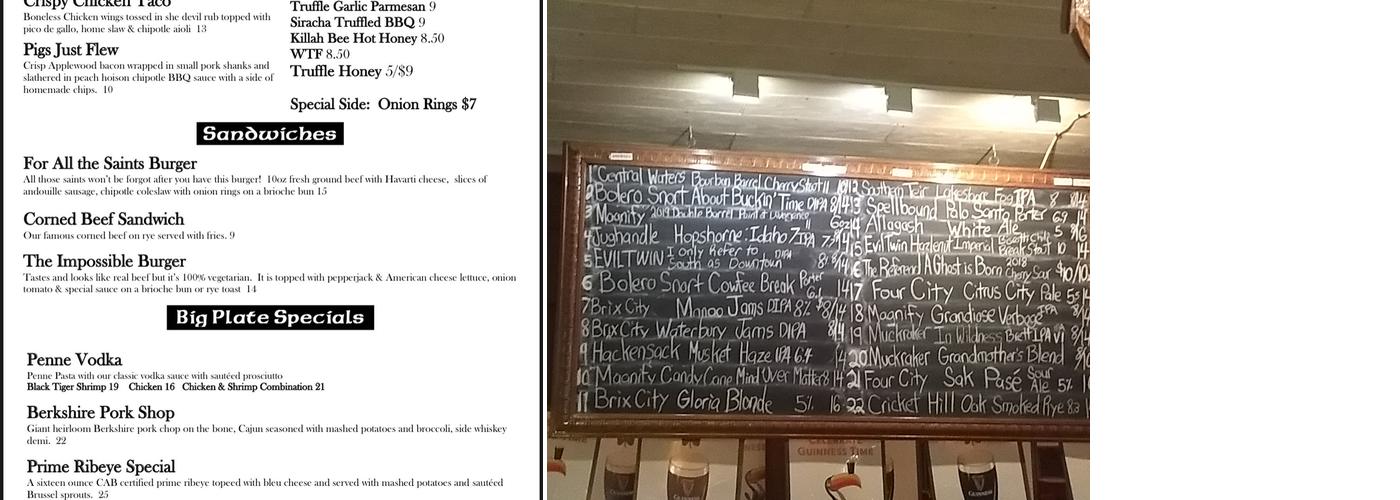 Crispy Chicken Taco
Boneless Chicken wings tossed in she devil rub topped with
pico de gallo, home slaw & chipotle aioli 13
Pigs Just Flew
Crisp Applewood bacon wrapped in small pork shanks and
slathered in peach hoison chipotle BBQ sauce with a side of
homemade chips. 10
Truffle Garlic Parmesan 9
Siracha Truffled BBQ 9
Killah Bee Hot Honey 8.50
WTF 8.50
Truffle Honey 5/$9
Special Side: Onion Rings $7
Sandwiches
For All the Saints Burger
All those saints won't be forgot after you have this burger! 10oz fresh ground beef with Havarti cheese, slices of
andouille sausage, chipotle coleslaw with onion rings on a brioche bun 15
Corned Beef Sandwich
Our famous corned beef on rye served with fries. 9
The Impossible Burger
Tastes and looks like real beef but it's 100% vegetarian. It is topped with pepperjack & American cheese lettuce, onion
tomato & special sauce on a brioche bun or rye toast 14
Big Plate Specials
Penne Vodka
Penne Pasta with our classic vodka sauce with sautéed prosciutto
Black Tiger Shrimp 19 Chicken 16 Chicken & Shrimp Combination 21
Berkshire Pork Shop
Giant heirloom Berkshire pork chop on the bone, Cajun seasoned with mashed potatoes and broccoli, side whiskey
demi. 22
Prime Ribeye Special
A sixteen ounce CAB certified prime ribeye topeed with bleu cheese and served with mashed potatoes and sautéed
Brussel sprouts. 25
1 Central Waters Bourbon Barrel Cherry Stout 11 10
2 Bolero Snort About Buckin' Time DIPA 8/14
3 Magnify 2019 Double Barrel Point of Divergence 11 6oz
4 Jughandle Hopshorne: Idaho 7 IPA
5 EVIL TWIN I only Refer to
South as Downtown DIPA 8
6 Bolero Snort Cowfee Break Porter 14
7 Brix City Mango Jams DIPA 8% $8/14
8 Brix City Waterbury Jams DIPA 8/14
9 Hackensack Musket Haze IPA 6.4 14
10 Magnify Candy Cane Mind Over Matter 8 14
11 Brix City Gloria Blonde 5% 16
12 Southern Tier Lakeshore Fog IPA 8 8/14
13 Spellbound Palo Santo Porter 6.9 14
14 Allagash White Ale 5 8/16
15 Evil Twin Hazlenut Imperial Break Stout 10 14
16 The Referend A Ghost is Born 2018 Cherry Sour $10/10
17 Four City Citrus City Pale 5.5
18 Magnify Grandiose Verbage IPA
19 Muckraker In Wildness Brett IPA VI 8/14
20 Muckraker Grandmother's Blend
21 Four City Sak Pasé Sour Ale 5%
22 Cricket Hill Oak Smoked Rye 8.3
CELEBRATE
GUINNESS TIME
GUINNESS
GUINNESS
GUINNESS